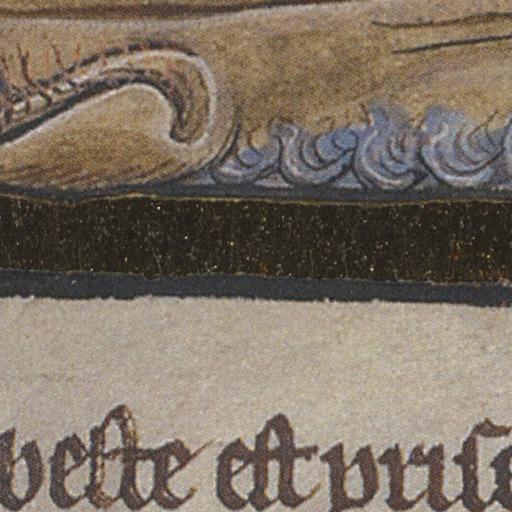 beste est prise